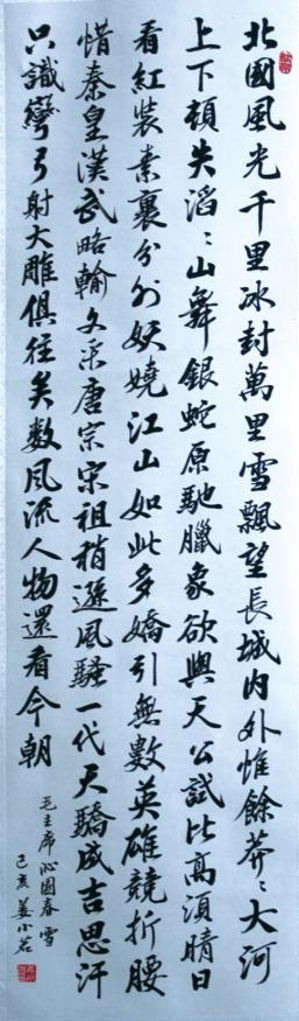 北國風光千里冰封萬里雪飄望長城内外惟餘莽〻大河
上下頓失滔〻山舞銀蛇原馳臘象欲與天公試比高須晴日
看紅裝素裹分外妖嬈江山如此多嬌引無數英雄競折腰
惜秦皇漢武略輸文采唐宗宋祖稍遜風騷一代天驕成吉思汗
只識彎弓射大雕俱往矣数風流人物還看今朝
毛主席沁園春雪
己亥姜小茗